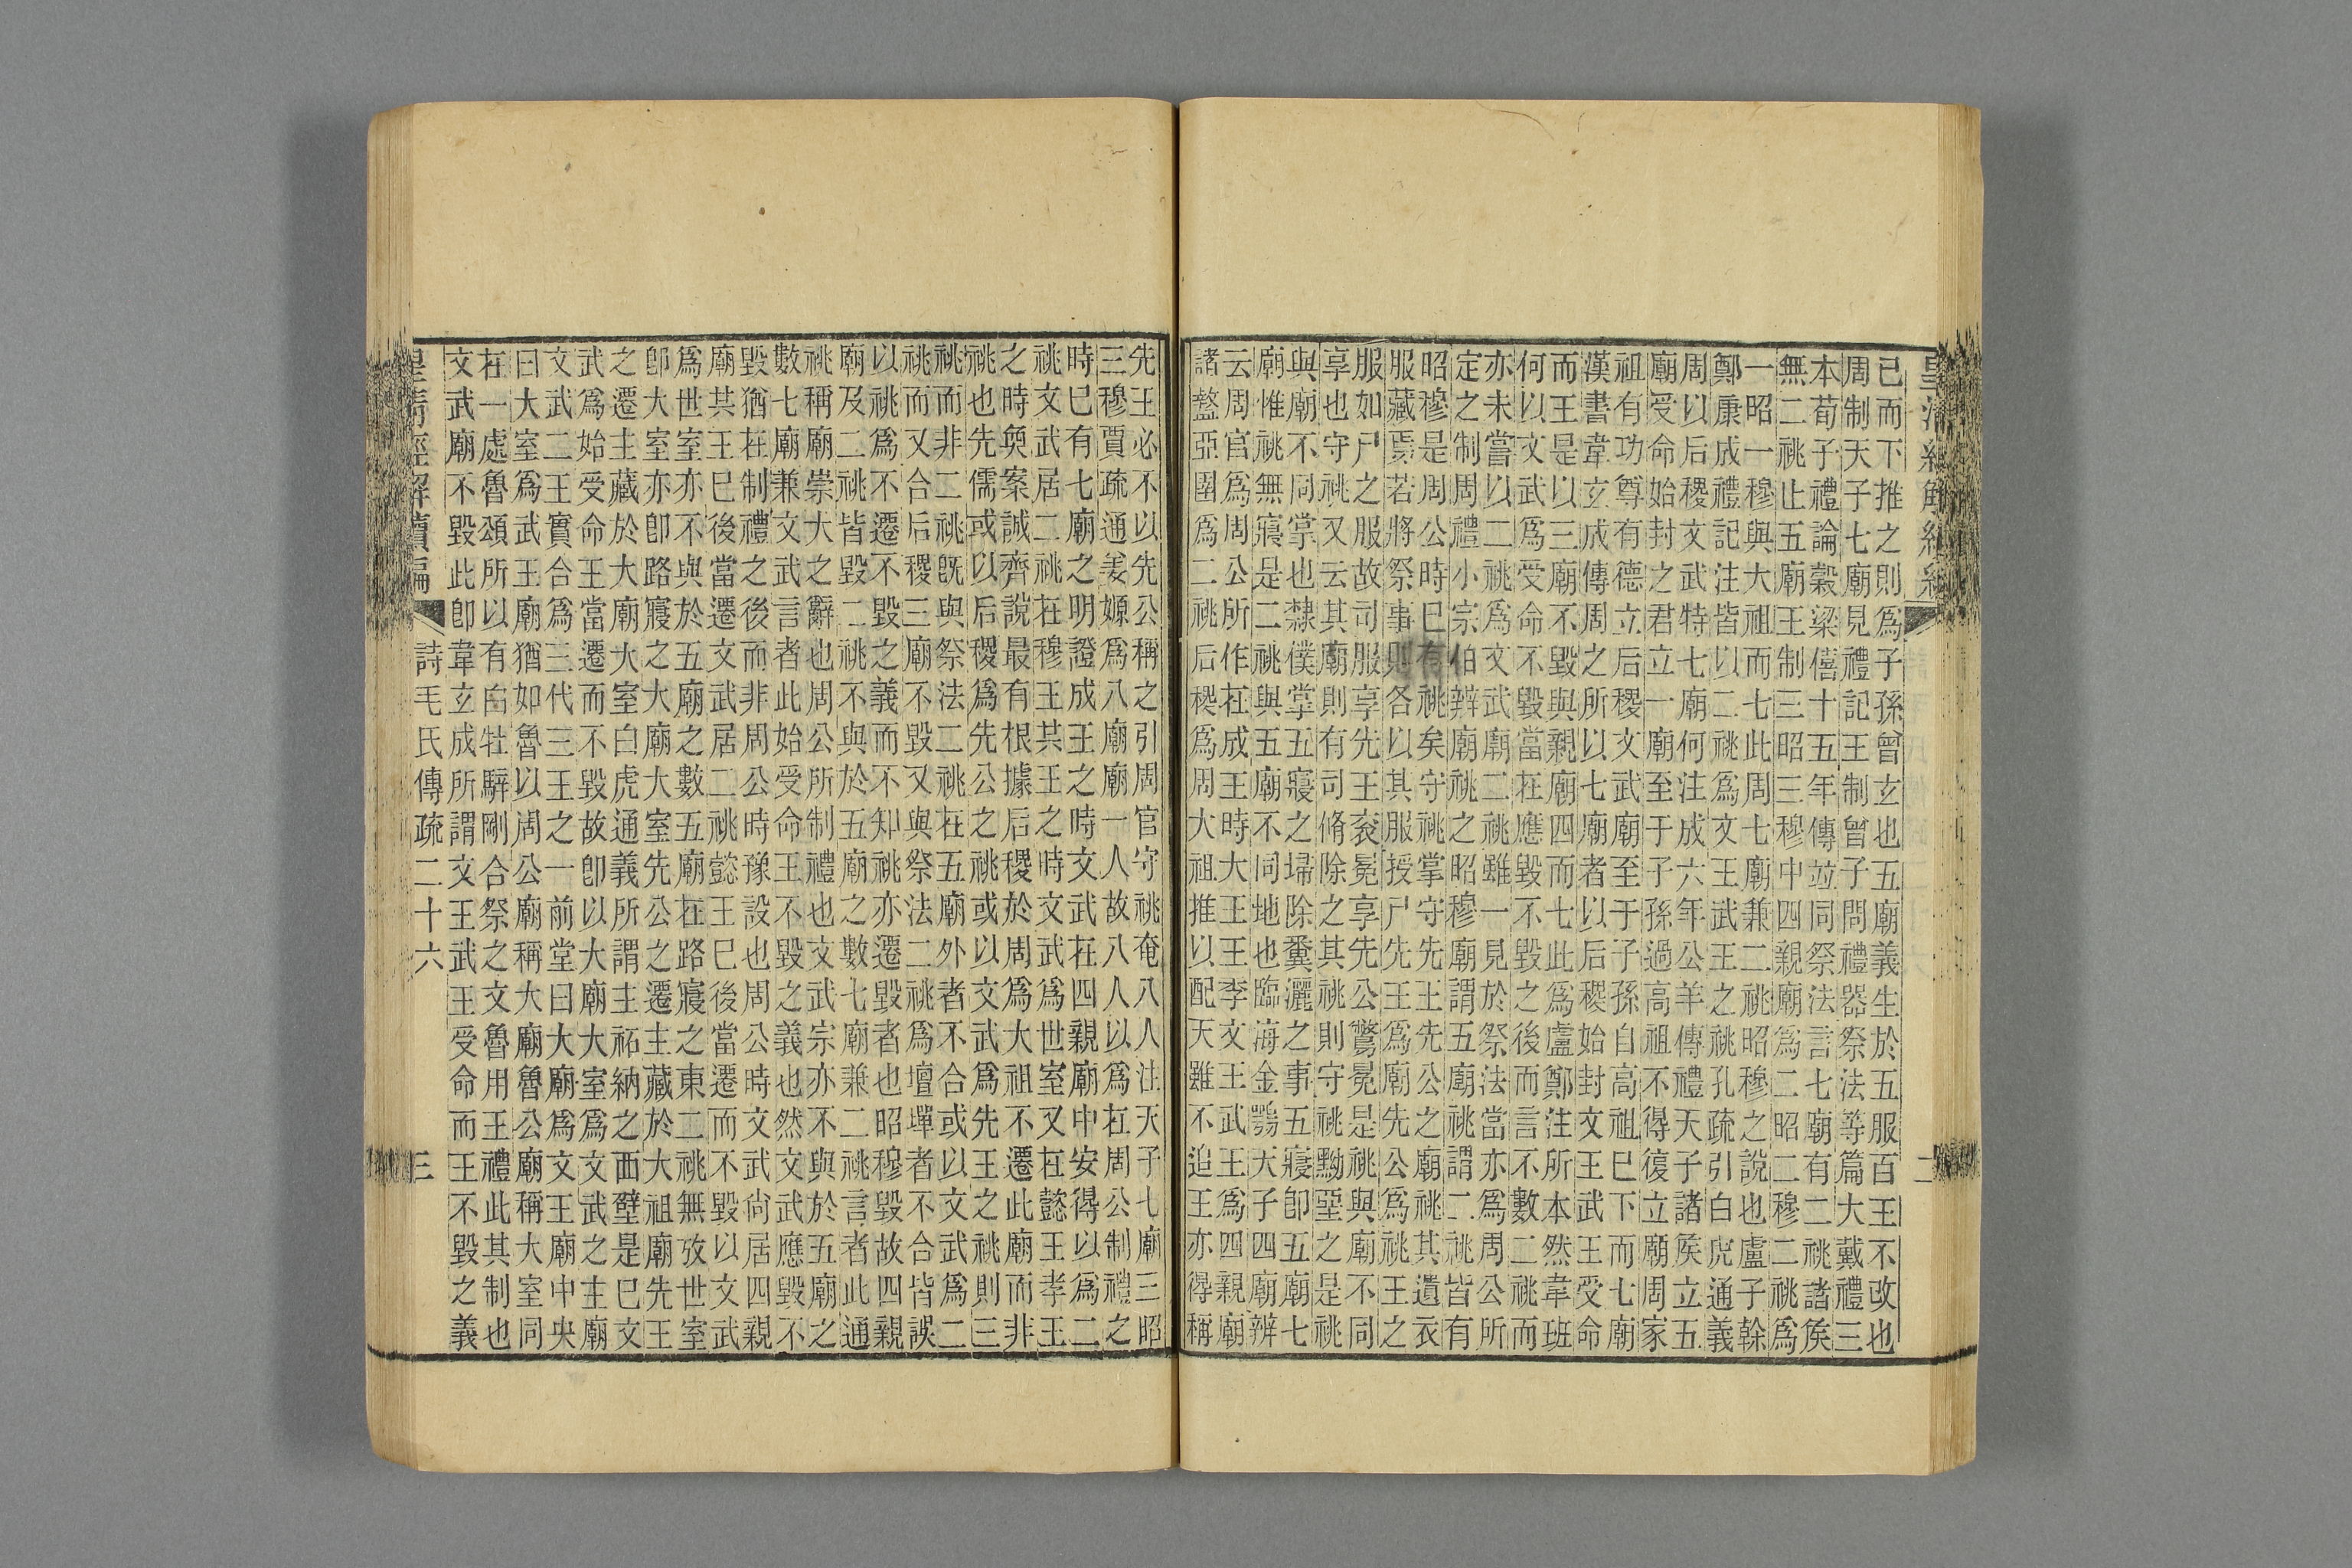 皇清經解續編
二
已而下推之則爲子孫曾玄也五廟義生於五服百王不改也
周制天子七廟見禮記王制曾子問禮器祭法等篇大戴禮三
本荀子禮論穀梁僖十五年傳竝同祭法言七廟有二祧諸矦
無二祧止五廟王制三昭三穆中四親廟爲二昭二穆二祧爲
一昭一穆與大祖而七此周七廟兼二祧昭穆之說也盧子榦
鄭康成禮記注皆以二祧爲文王武王之祧孔疏引白虎通義
周以后稷文武特七廟何注成六年公羊傳禮天子諸矦立五
廟受命始封之君立一廟至于子孫過高祖不得復立廟周家
祖有功尊有德立后稷文武廟至于子孫自高祖已下而七廟
漢書韋玄成傳周之所以七廟者以后稷始封文王武王受命
而王是以三廟不毀與親廟四而七此爲盧鄭注所本然韋班
何以文武爲受命不毀當在應毀不毀之後而言不數二祧而
亦未嘗以二祧爲文武廟二祧雖一見於祭法當亦爲周公所
定之制周禮小宗伯辨廟祧之昭穆廟謂五廟祧謂二祧皆有
昭穆是周公時已有祧矣守祧掌守先王先公之廟祧其遺衣
服藏焉若將祭事則各以其服授尸先王爲廟先公爲祧王之
服如尸之服故司服享先王袞冕享先公鷩冕是祧與廟不同
享也守祧又云其廟則有司脩除之其祧則守祧黝堊之是祧
與廟不同掌也隸僕掌五寢之埽除糞灑之事五寢卽五廟七
廟惟祧無寢是二祧與五廟不同地也臨海金鶚天子四廟辨
云周官爲周公所作在成王時大王王季文王武王爲四親廟
諸盩亞圉爲二祧后稷爲周大祖推以配天雖不追王亦得稱
先王必不以先公稱之引周官守祧奄八人注天子七廟三昭
三穆賈疏通姜嫄爲八廟廟一人故八人以爲在周公制禮之
時已有七廟之明證成王之時文武在四親廟中安得以爲二
祧文武居二祧在穆王其王之時文武爲世室又在懿王孝王
之時奐案誠齊說最有根據后稷於周爲大祖不遷此廟而非
祧也先儒或以后稷爲先公之祧或以文武爲先王之祧則三
祧而非二祧既與祭法二祧在五廟外者不合或以文武爲二
祧而又合后稷三廟不毀又與祭法二祧爲壇墠者不合皆誤
以祧爲不遷不毀之義而不知祧亦遷毀者也昭穆毀故四親
廟及二祧皆毀二祧不與於五廟之數七廟兼二祧言者此通
祧稱廟崇大之辭也周公所制禮也文武宗亦不與於五廟之
數七廟兼文武言者此始受命王不毀之義也然文武應毀不
毀猶在制禮之後而非周公時豫設也周公時文武尚居四親
廟其王已後當遷文武居二祧懿王已後當遷而不毀以文武
爲世室亦不與於五廟之數五廟在路寢之東二祧無攷世室
卽大室亦卽路寢之大廟大室先公之遷主藏於大祖廟先王
之遷主藏於大廟大室白虎通義所謂主祏納之西壁是已文
武爲始受命王當遷而不毀故卽以大廟大室爲文武之主廟
文武二王實合爲三代三王之一前堂曰大廟爲文王廟中央
曰大室爲武王廟猶如魯以周公廟稱大廟魯公廟稱大室同
在一處魯頌所以有白牡騂剛合祭之文魯用王禮此其制也
文武廟不毀此卽韋玄成所謂文王武王受命而王不毀之義
皇清經解續編
詩毛氏傳疏二十六
三